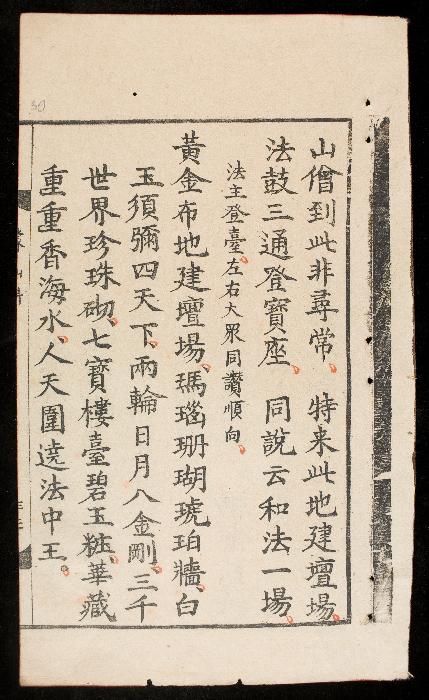 山僧到此非尋常、特来此地建壇場、
法鼓三通登寶座、同説云和法一場、
法主登臺、左右大眾同讚順向、
黃金布地建壇場、瑪瑙珊瑚琥珀牆、白
玉須彌四天下、兩輪日月八金剛、三千
世界珍珠砌、七寶樓臺碧玉粧、華藏
重重香海水、人天圍遶法中王。